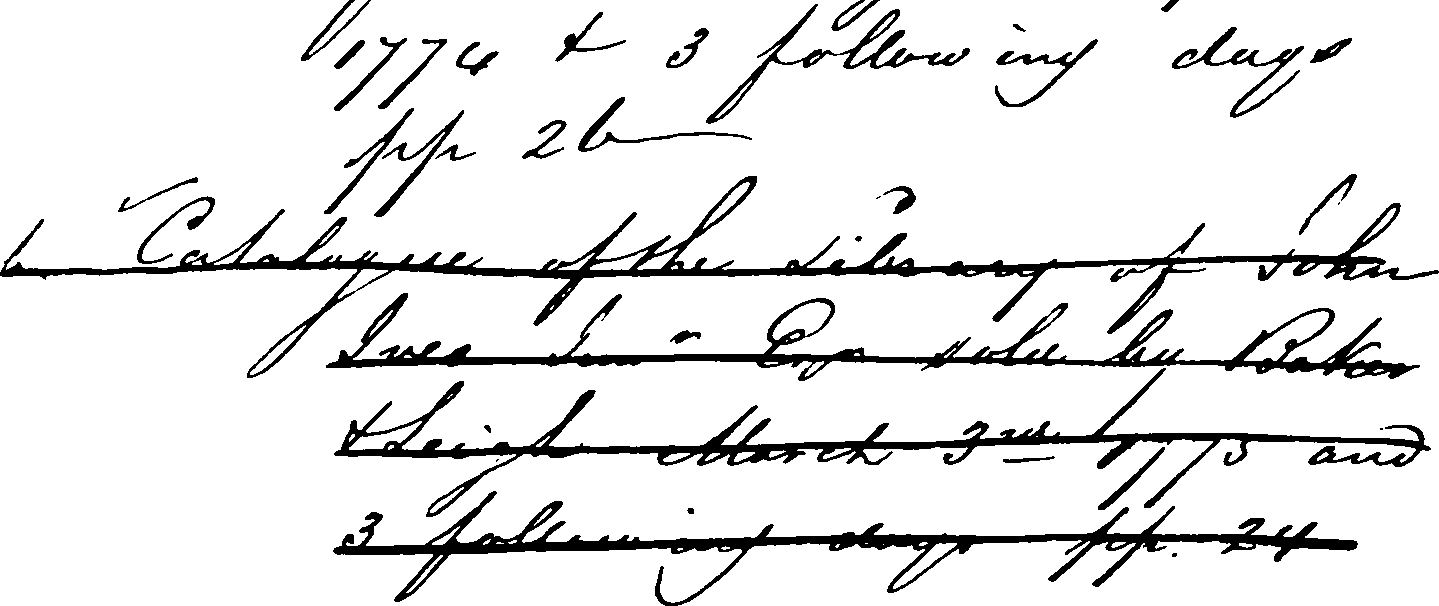 1774 & 3 following days
pp 26
Catalogue of the Library of John
Ives Jun " Esqr sold by Baker
& Leigh March 3rd 1775 and
3 following days pp. 24